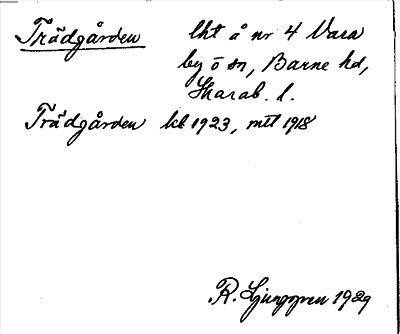 Trädgården lht å nr 4 Vara
by ö sn, Barne hd,
Skarab. l.
Trädgården kb 1923, mtl 1918
R. Ljunggren 1929